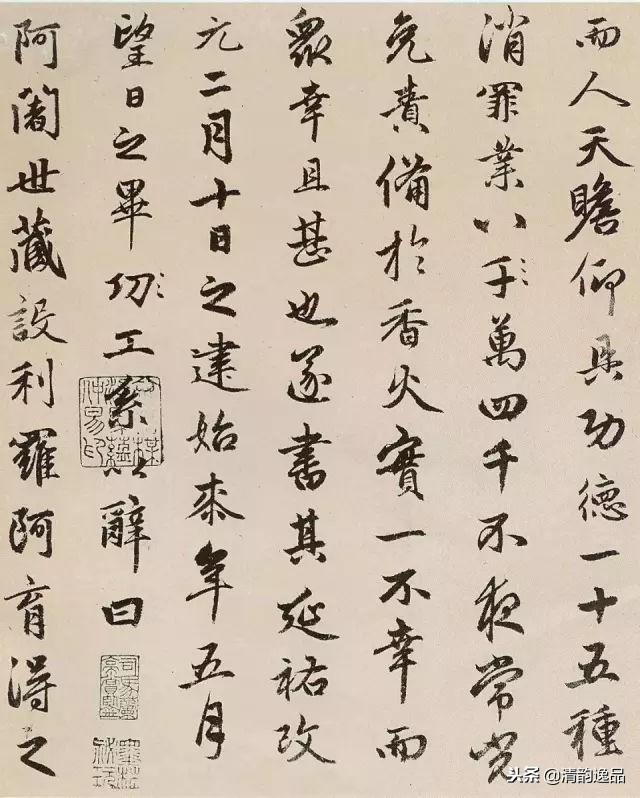 而人天瞻仰具功德一十五種
消罪業八千萬四千不夜常光
免責備於香火實一不幸而
衆幸且甚也遂書其延祐改
元二月十日之建始來年五月
望日之畢功工系以辭曰
阿闍世藏設利羅阿育得之
头条@清韵逸品